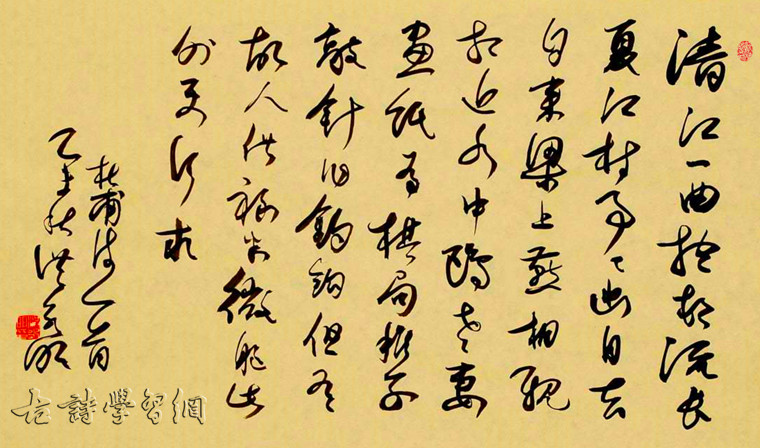 清江一曲抱村流長
夏江村事々幽自去
自來梁上燕相親
相近水中鷗老妻
畫紙为棋局稚子
敲針作釣鉤但有
故人供祿米微躯此
外更何求
杜甫诗一首
乙秋
古詩學習網